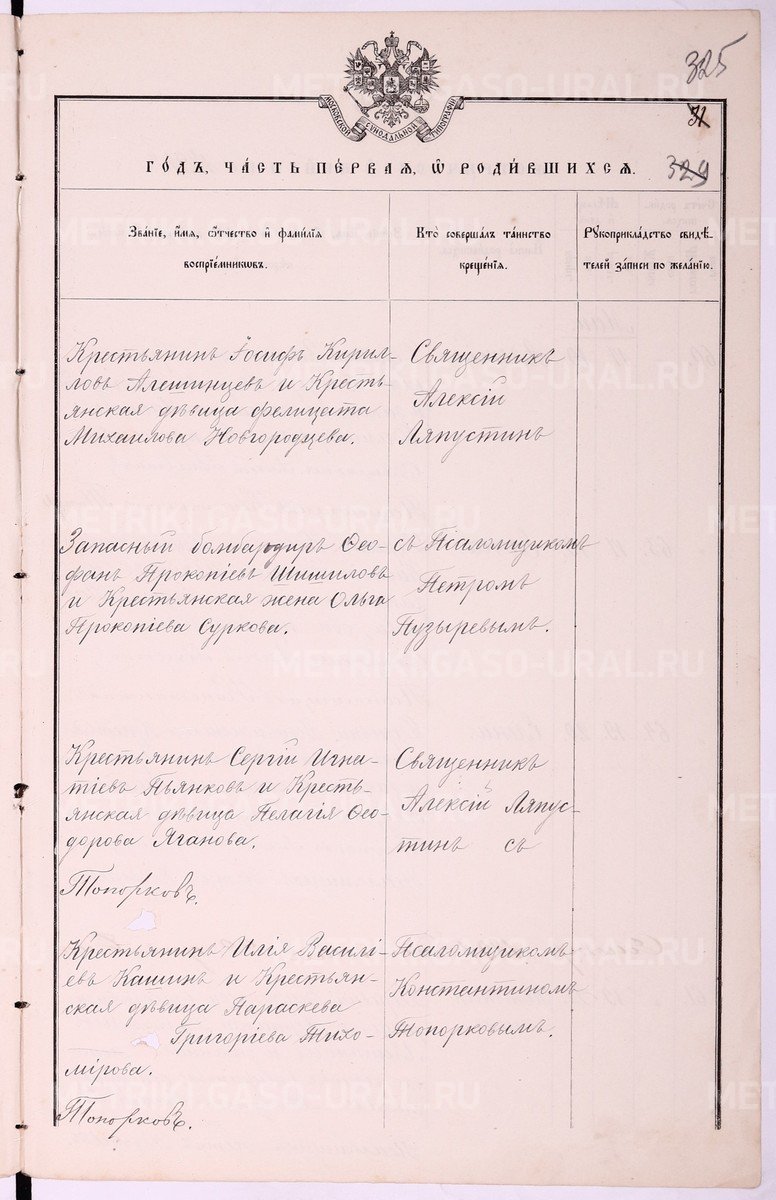 325
МОСКОВСКОЙ СУНОДАЛЬНОЙ ТИПОГРАФІИ
31
ГОДЪ, ЧАСТЬ ПЕРВАЯ, Ѡ РОДИВШИХСЯ.
329
Званіе, имя, ѻтчество и фамилія
воспріемниковъ.
Кто совершалъ таинство
крещенія.
Рукоприкладство свидѣ-
телей записи по желанію.
Крестьянинъ Іосифъ Кирил-
ловъ Алешинцевъ и Кресть-
янская дѣвица Фелицата
Михаилова Новгородцева.
Священникъ
Алексій
Ляпустинъ
Запасный бомбардиръ Ѳео-
фанъ Прокопіевъ Шишиловъ
и Крестьянская жена Ольга
Прокопіева Суркова.
съ Псаломщикомъ
Петромъ
Пузыревымъ.
Крестьянинъ Сергій Игна-
тіевъ Пьянковъ и Кресть-
янская дѣвица Пелагія Ѳео-
дорова Яганова.
Топорковъ.
Священникъ
Алексій Ляпус-
тинъ съ
Крестьянинъ Илія Василі-
евъ Кашинъ и Крестьян-
ская дѣвица Параскева
Григоріева Тихо-
мірова.
Топорковъ.
Псаломщикомъ
Константиномъ
Топорковымъ.
METRIKI.GASO-URAL.RU